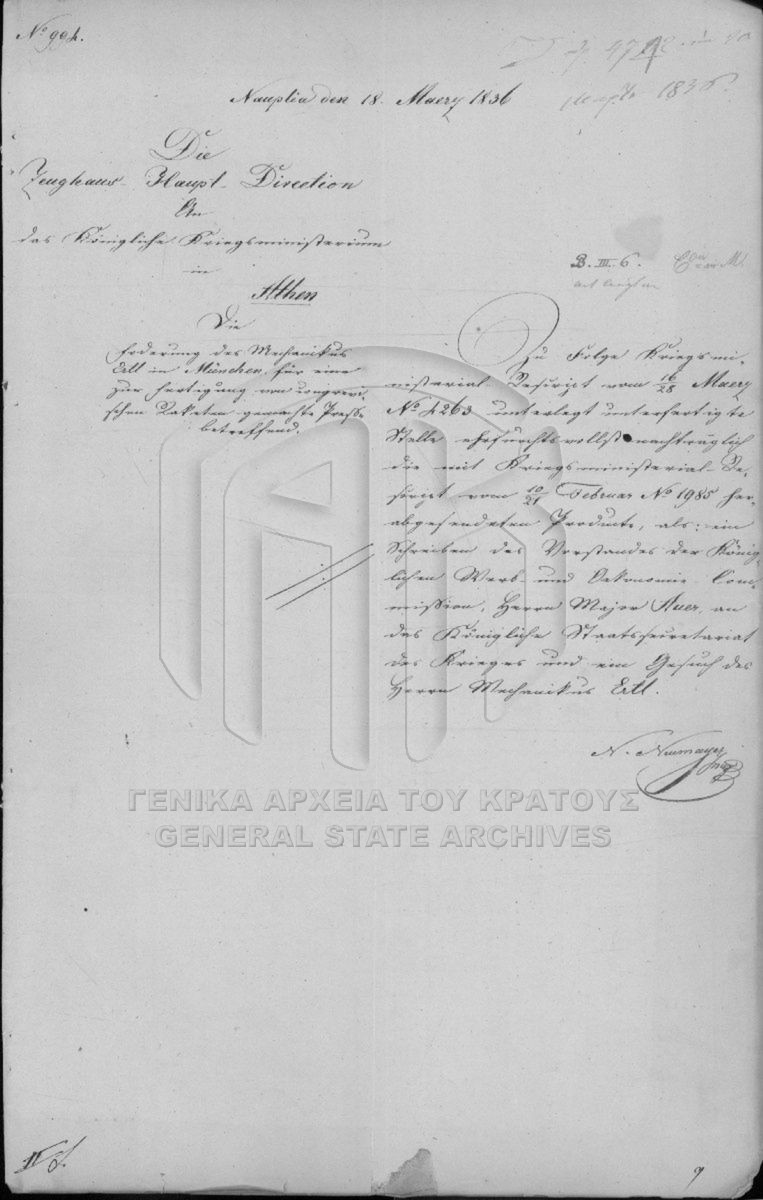 No 904.
1836.
Nauplia den 18. Maerz 1836
Die
Zeughaus-Haupt-Direction
An
das Königliche Kriegsministerium
in
Athen
B. III. 6.
Die
Forderung des Mechanikus
Ertl in München, für eine
zur Fertigung von congrevi-
schen Raketen gemachte Presse
betreffend.
Zu Folge Kriegsmi-
nisterial-Rescript vom 16/28 Maerz
No 4263 unterlegt unterfertigte
Stelle ehrfurchtsvollst nachträglich
die mit Kriegsministerial-Re-
script vom 10/21 Februar No 1985 her-
abgesendeten Producte, als: ein
Schreiben des Vorstandes der König-
lichen Werb- und Oekonomie-Com-
mission, Herrn Major Auer, an
das Königliche Staatssecretariat
des Krieges und ein Gesuch des
Herrn Mechanikus Ertl.
N. Neumayer
ΓΕΝΙΚΑ ΑΡΧΕΙΑ ΤΟΥ ΚΡΑΤΟΥΣ
GENERAL STATE ARCHIVES